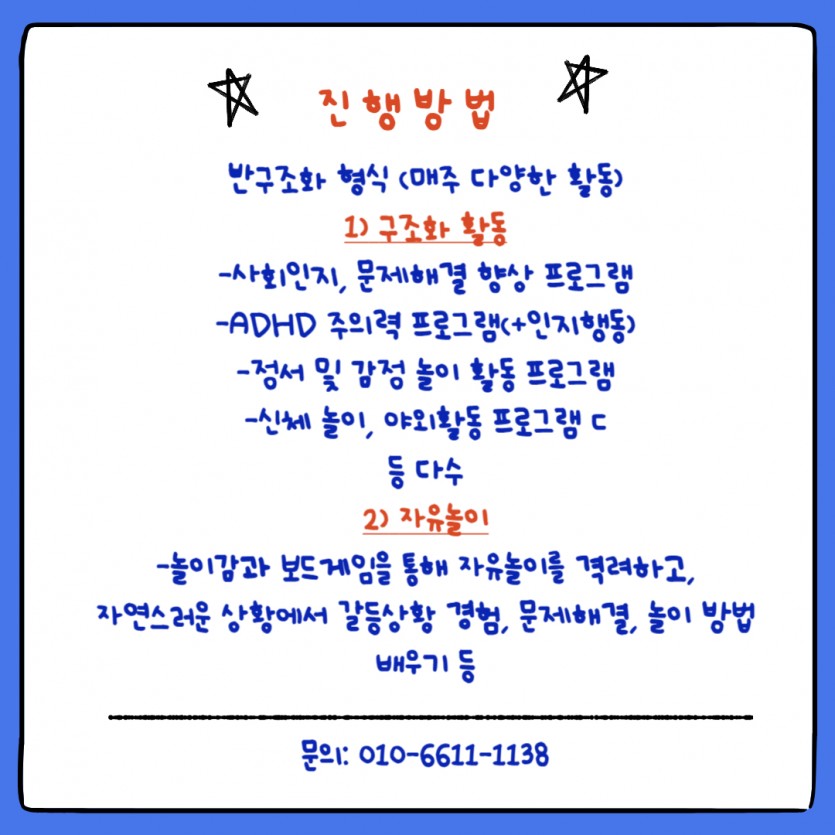 진행방법
반구조화 형식 (매주 다양한 활동)
1) 구조화 활동
-사회인지, 문제해결 향상 프로그램
-ADHD 주의력 프로그램(+인지행동)
-정서 및 감정 놀이 활동 프로그램
-신체 놀이, 야외활동 프로그램 ㄷ
등 다수
2) 자유놀이
-놀이감과 보드게임을 통해 자유놀이를 격려하고,
자연스러운 상황에서 갈등상황 경험, 문제해결, 놀이 방법
배우기 등
문의: 010-6611-1138